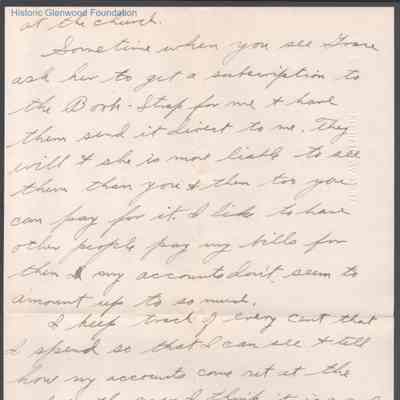 Historic Glenwood Foundation
at the church.
Sometime when you see Grace
ask her to get a subscription to
the Book-Strap for me & have
them send it direct to me. They
will & she is more liable to see
them than you & then too you
can pay for it. I like to have
other people pay my bills for
then my accounts don't seem to
amount up to so much.
I keep track of every cent that
I spend so that I can see & tell
how my accounts come out at the